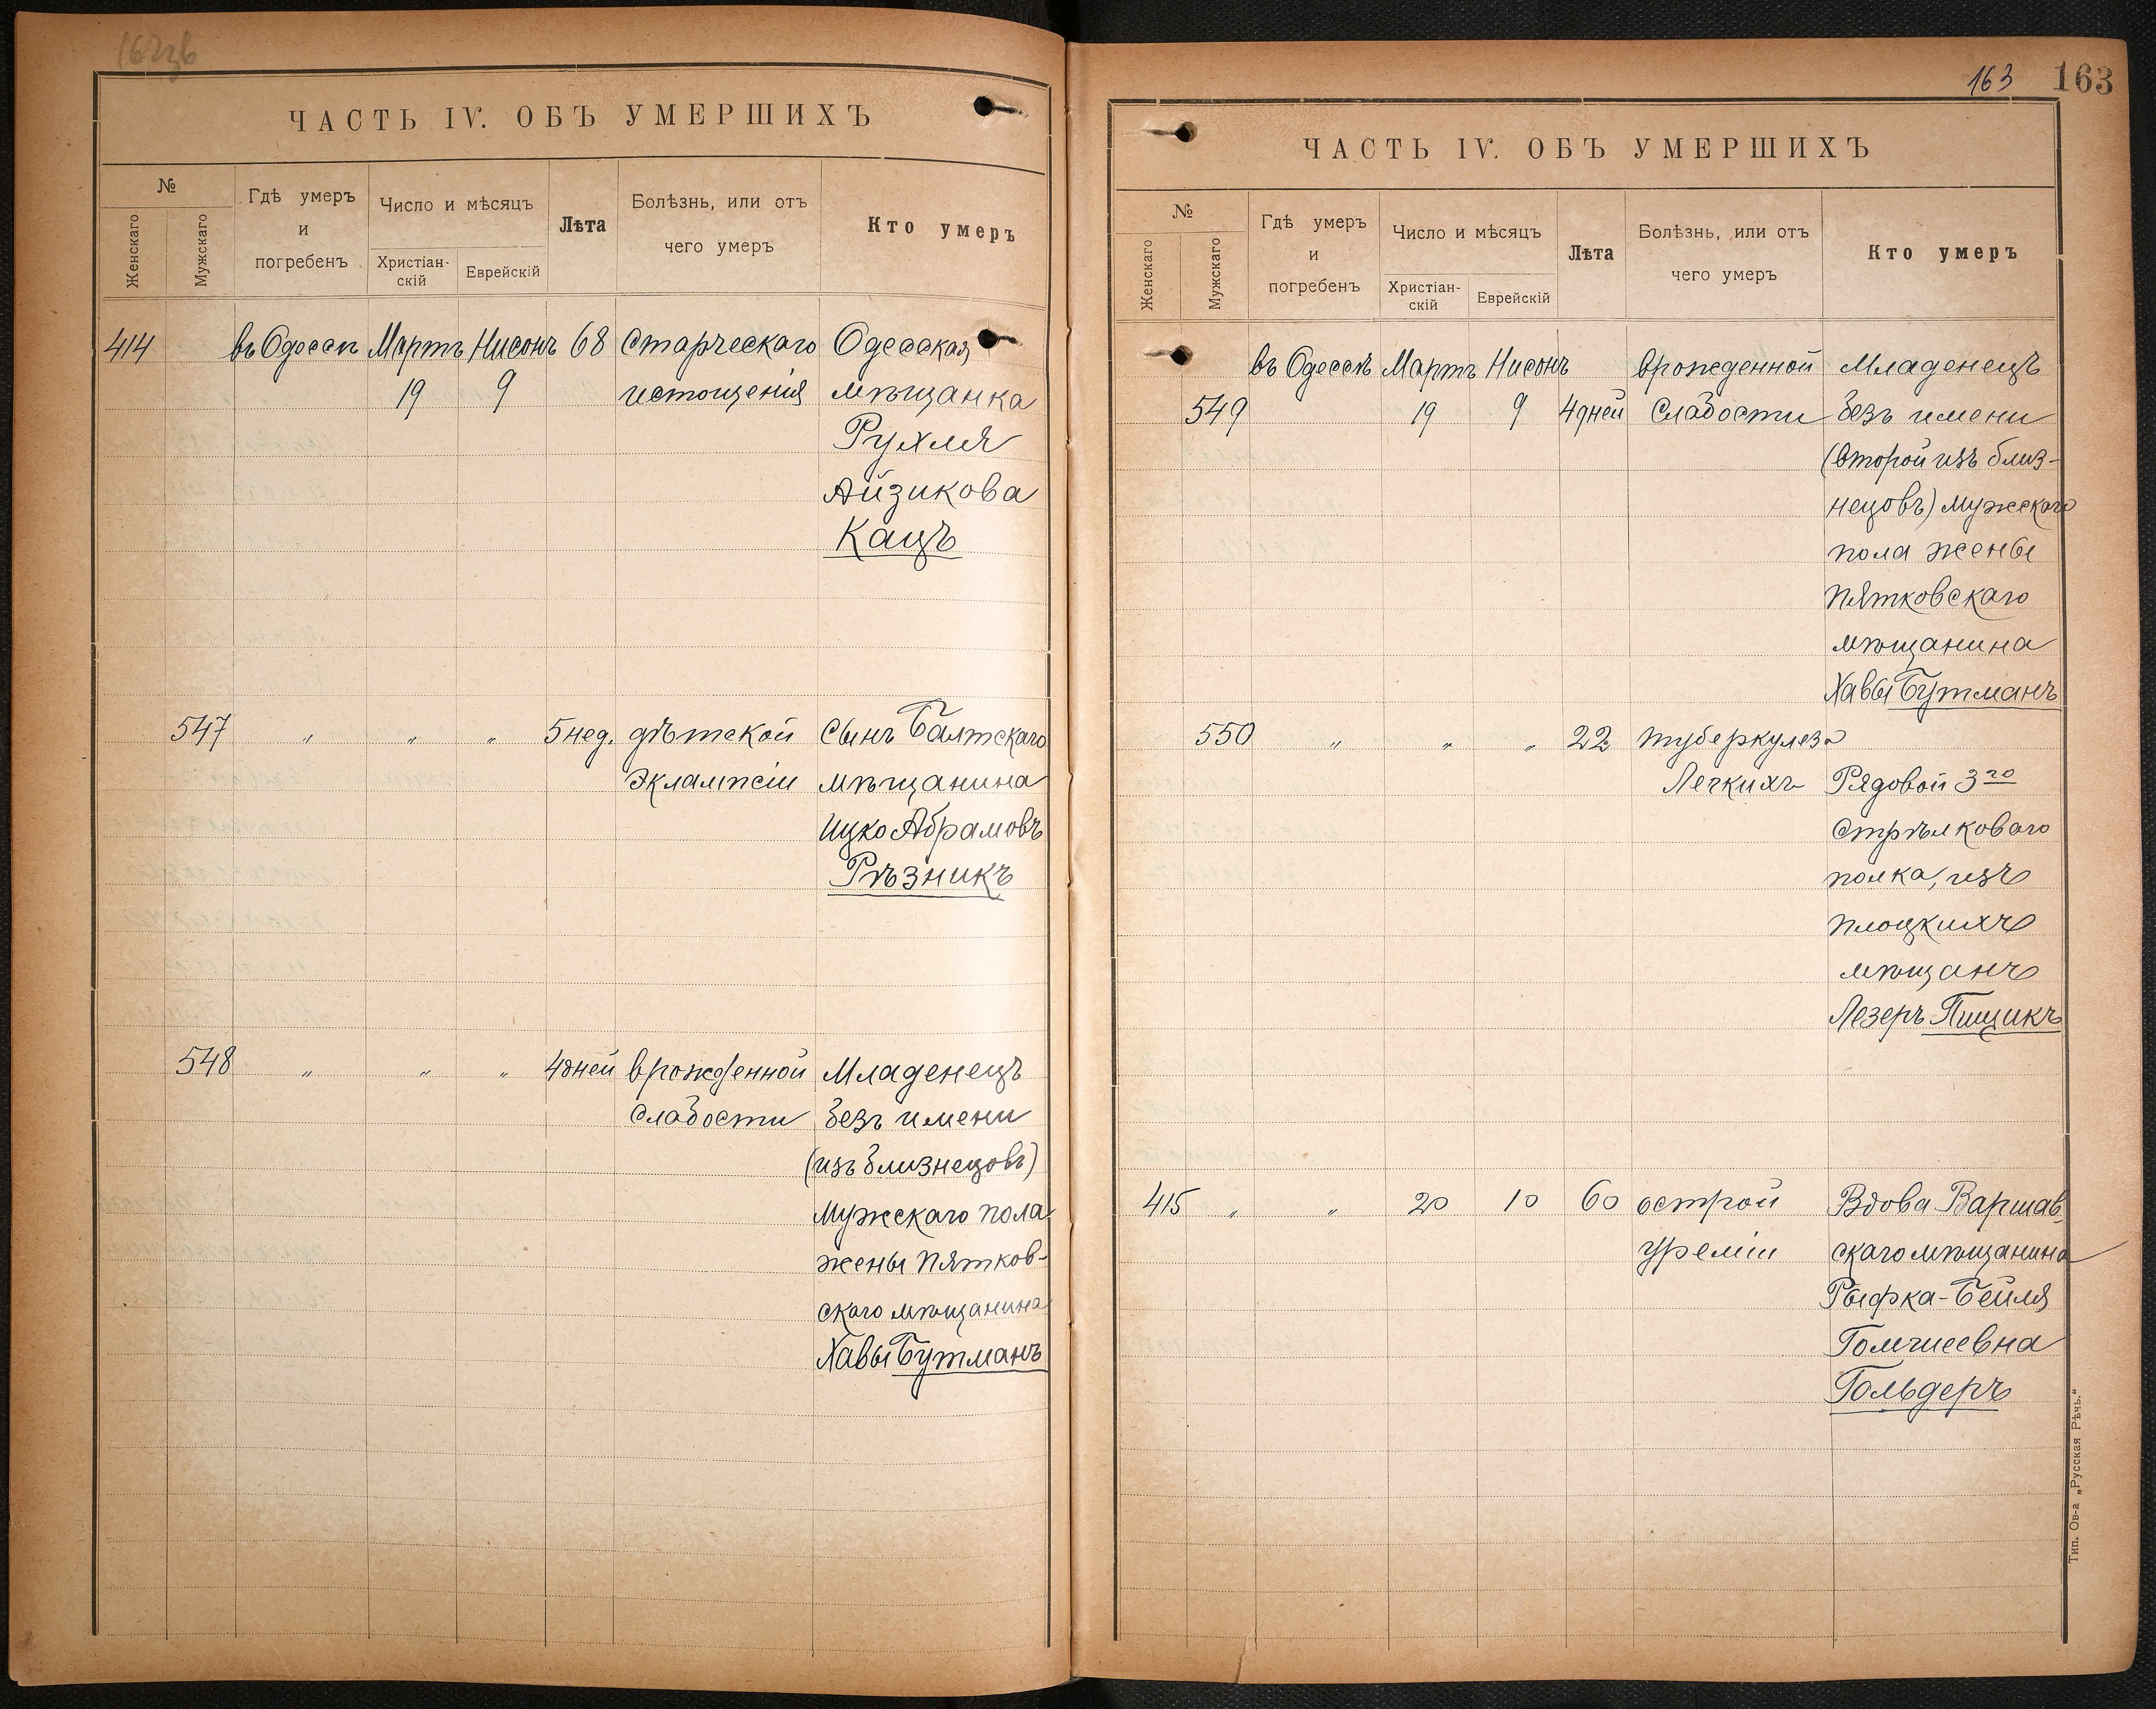 ЧАСТЬ IV. ОБЪ УМЕРШИХЪ
№
Женскаго
Мужскаго
Гдѣ умеръ
и
погребенъ
Число и мѣсяцъ
Христіан-
скій
Еврейскій
Лѣта
Болѣзнь, или отъ
чего умеръ
Кто умеръ
414 въ Одессѣ Мартъ Нисонъ 68 Старческаго Одесская
19 9 истощенія мѣщанка
Рухля
Айзикова
Кацъ
547 " " " 5 нед. дѣтской Сынъ Балтскаго
Эклампсіи мѣщанина
Ицко Абрамовъ
Рѣзникъ
548 " " " 4 дней врожденной Младенецъ
слабости безъ имени
(изъ близнецовъ)
Мужскаго пола
жены Пятков-
скаго мѣщанина
Хавы Бутманъ
163 163
ЧАСТЬ IV. ОБЪ УМЕРШИХЪ
№
Женскаго
Мужскаго
Гдѣ умеръ
и
погребенъ
Число и мѣсяцъ
Христіан-
скій
Еврейскій
Лѣта
Болѣзнь, или отъ
чего умеръ
Кто умеръ
въ Одессѣ Мартъ Нисонъ врожденной Младенецъ
549 19 9 4 дней слабости безъ имени
(второй изъ близ-
нецовъ) Мужскаго
пола жены
Пятковскаго
мѣщанина
Хавы Бутманъ
550 " " " 22 туберкулеза
Легкихъ Рядовой 3го
Стрѣлковаго
полка, изъ
Плоцкихъ
мѣщанъ
Лезеръ Пищикъ
415 " " 20 10 60 острой Вдова Варшав-
уреміи скаго мѣщанина
Рыфка-Бейля
Гольдеръ
Тип. Ов-а „Русская Рѣчь.“